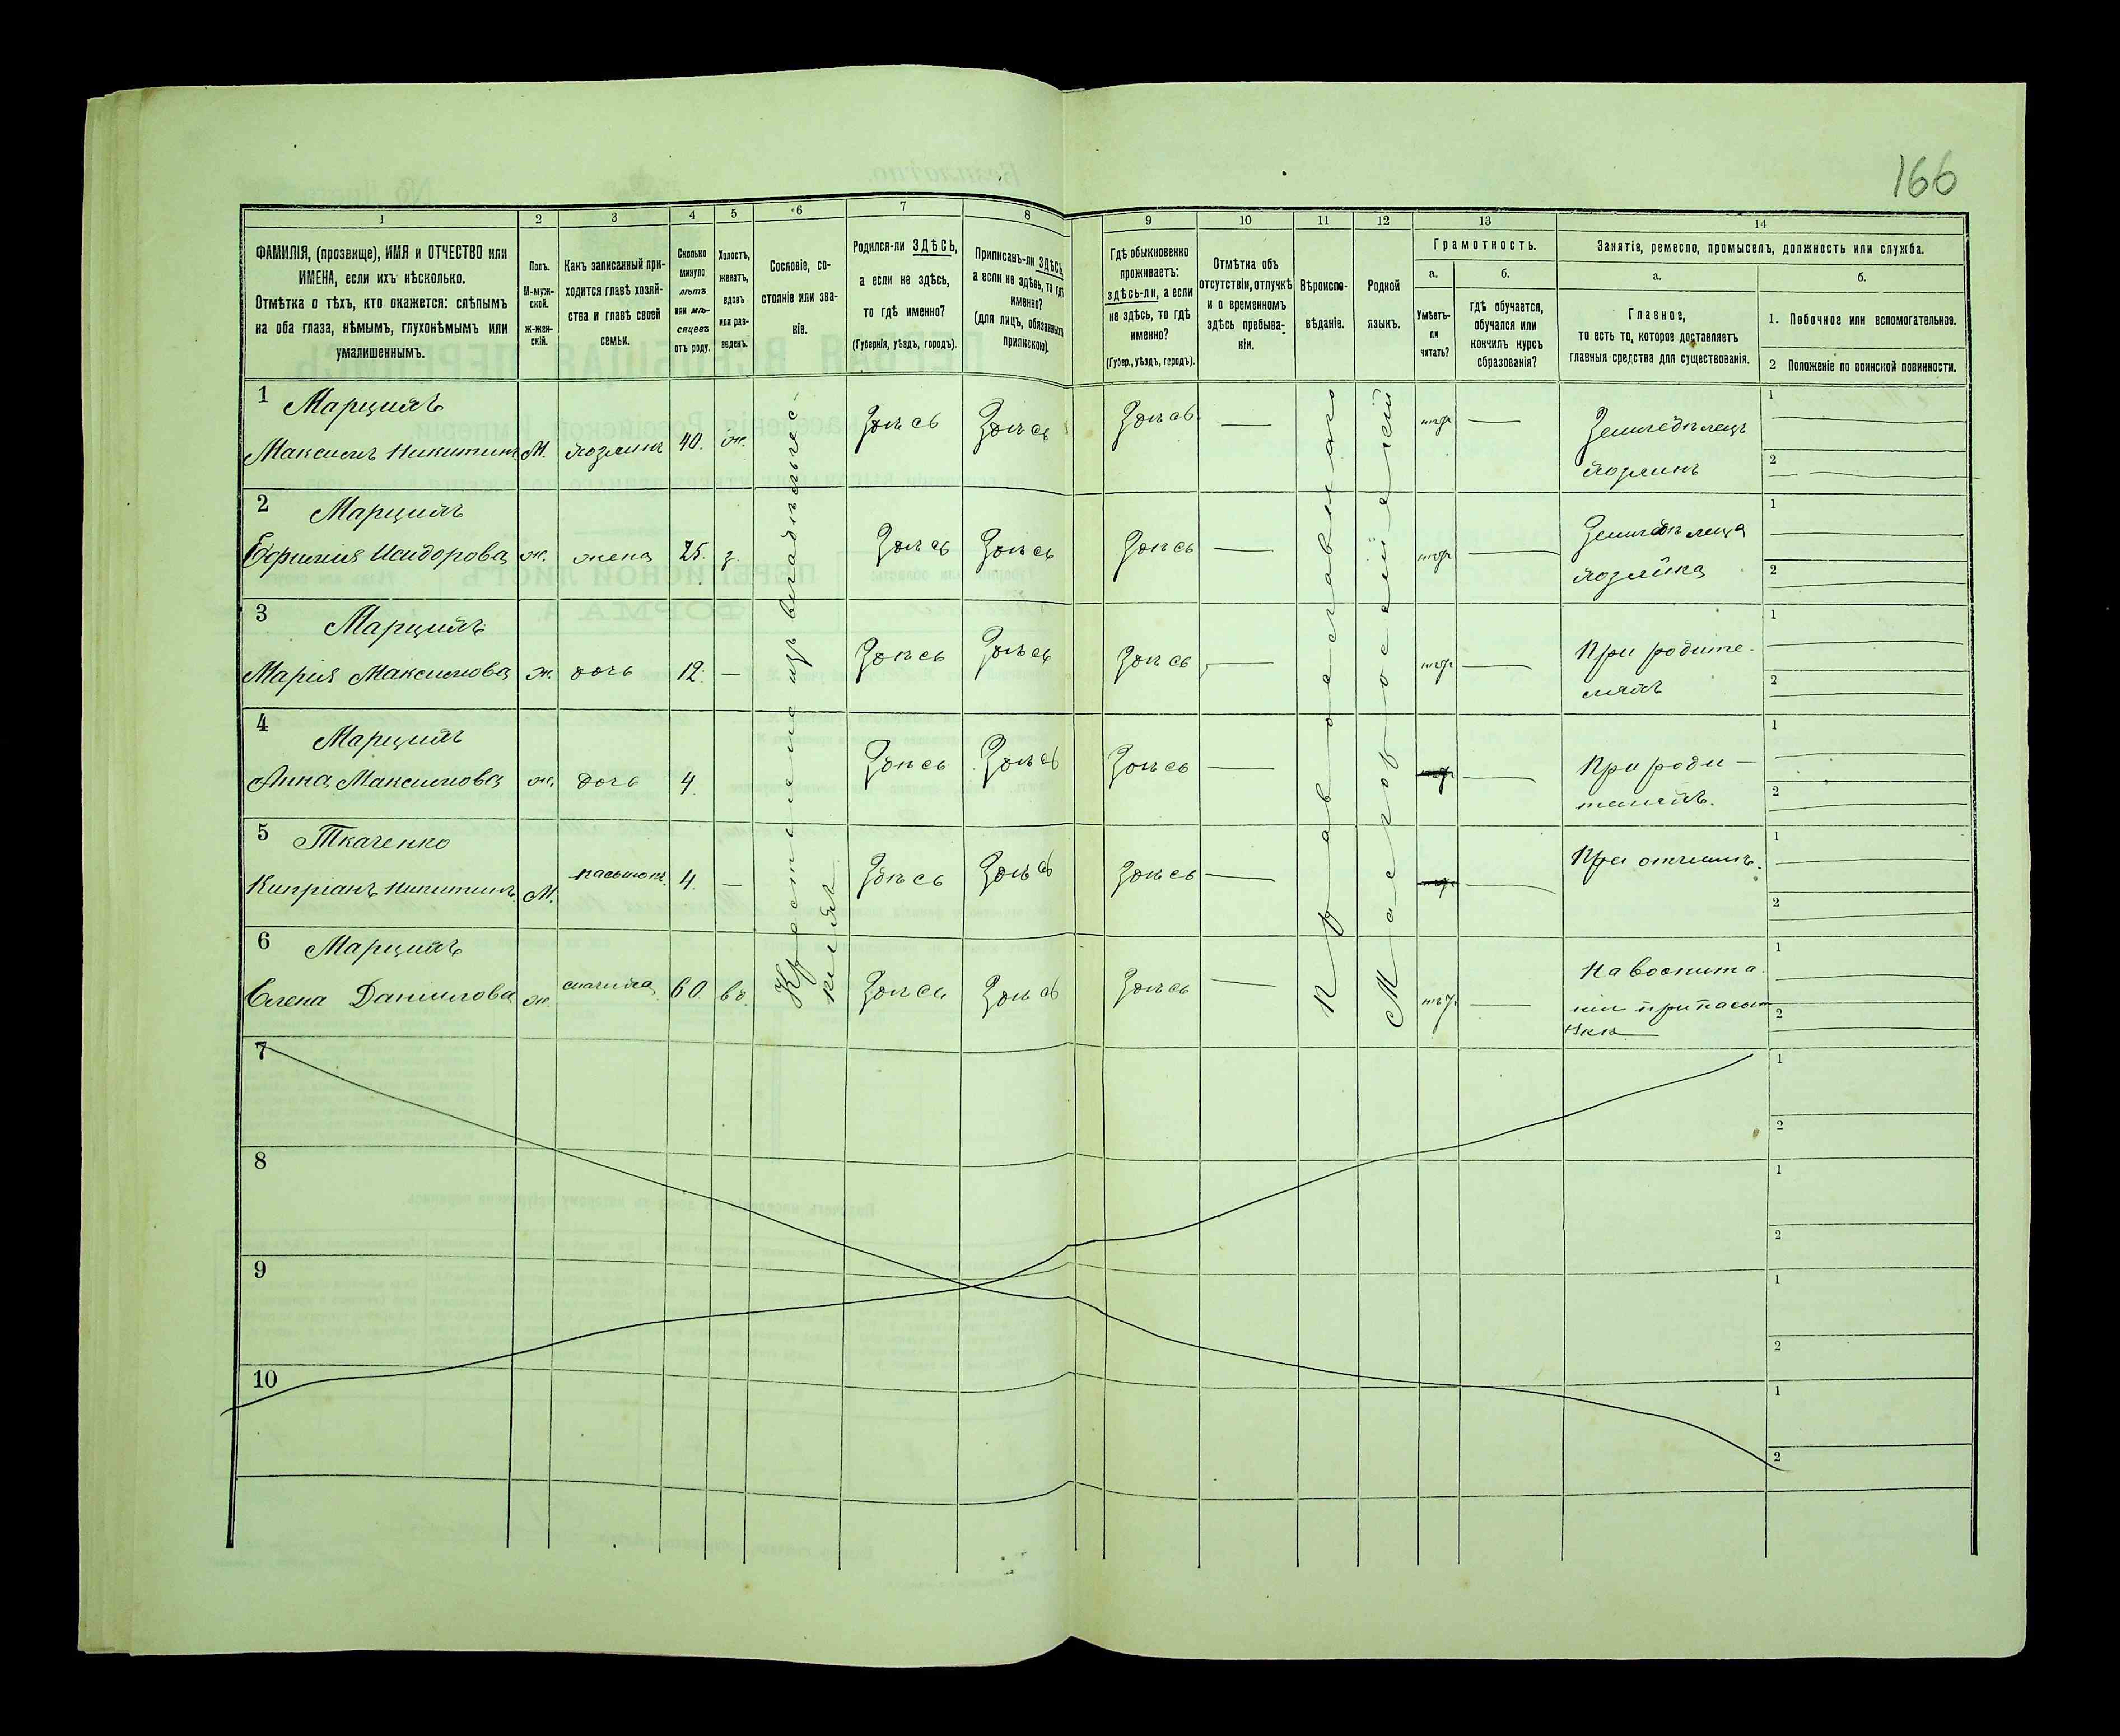 166
1 2 3 4 5 6 7 8 9 10 11 12 13 14
ФАМИЛІЯ, (прозвище), ИМЯ и ОТЧЕСТВО или
ИМЕНА, если ихъ нѣсколько.
Отмѣтка о тѣхъ, кто окажется: слѣпымъ
на оба глаза, нѣмымъ, глухонѣмымъ или
умалишеннымъ.
Полъ.
М-муж-
ской.
Ж-жен-
скій.
Какъ записанный при-
ходится главѣ хозяй-
ства и главѣ своей
семьи.
Сколько
минуло
лѣтъ
или мѣ-
сяцевъ
отъ роду.
Холостъ,
женатъ,
вдовъ
или раз-
веденъ.
Сословіе, со-
стояніе или зва-
ніе.
Родился-ли ЗДѢСЬ,
а если не здѣсь,
то гдѣ именно?
(Губернія, уѣздъ, городъ).
Приписанъ-ли ЗДѢСЬ,
а если не здѣсь, то гдѣ
именно?
(для лицъ, обязанныхъ
припискою).
Гдѣ обыкновенно
проживаетъ:
здѣсь-ли, а если
не здѣсь, то гдѣ
именно?
(Губер., уѣздъ, городъ).
Отмѣтка объ
отсутствіи, отлучкѣ
и о временномъ
здѣсь пребыва-
ніи.
Вѣроиспо-
вѣданіе.
Родной
языкъ.
Грамотность.
а.
Умѣетъ-
ли
читать?
б.
гдѣ обучается,
обучался или
кончилъ курсъ
образованія?
Занятіе, ремесло, промыселъ, должность или служба.
а.
Главное,
то есть то, которое доставляетъ
главныя средства для существованія.
б.
1. Побочное или вспомогательное.
2 Положеніе по воинской повинности.
Крестьянинъ изъ владѣльчес-
кихъ
Православнаго
Малороссійскій
1 Марцихъ Здѣсь Здѣсь Здѣсь — нѣтъ — Земледѣлецъ 1
Максимъ Никитинъ М. хозяинъ 40. ж. хозяинъ 2
2 Марцихъ Здѣсь Здѣсь Здѣсь — нѣтъ — Земледѣлица 1
Ефимія Исидорова ж. жена з. хозяйка 2
3 Марцихъ Здѣсь Здѣсь Здѣсь — нѣтъ — При родите- 1
Марія Максимова ж. дочь 12. — ляхъ 2
4 Марцихъ Здѣсь Здѣсь Здѣсь — — При роди- 1
Анна Максимова ж. дочь 4. теляхъ. 2
5 Ткаченко Здѣсь Здѣсь Здѣсь — — При отчимѣ. 1
Кипріанъ Никитинъ М. пасынокъ 4. — 2
6 Марцихъ Здѣсь Здѣсь Здѣсь — нѣтъ — На воспита- 1
Елена Данилова ж. 60 вд. ніи при пасын- 2
кѣ
7 1
2
8 1
2
9 1
2
10 1
2